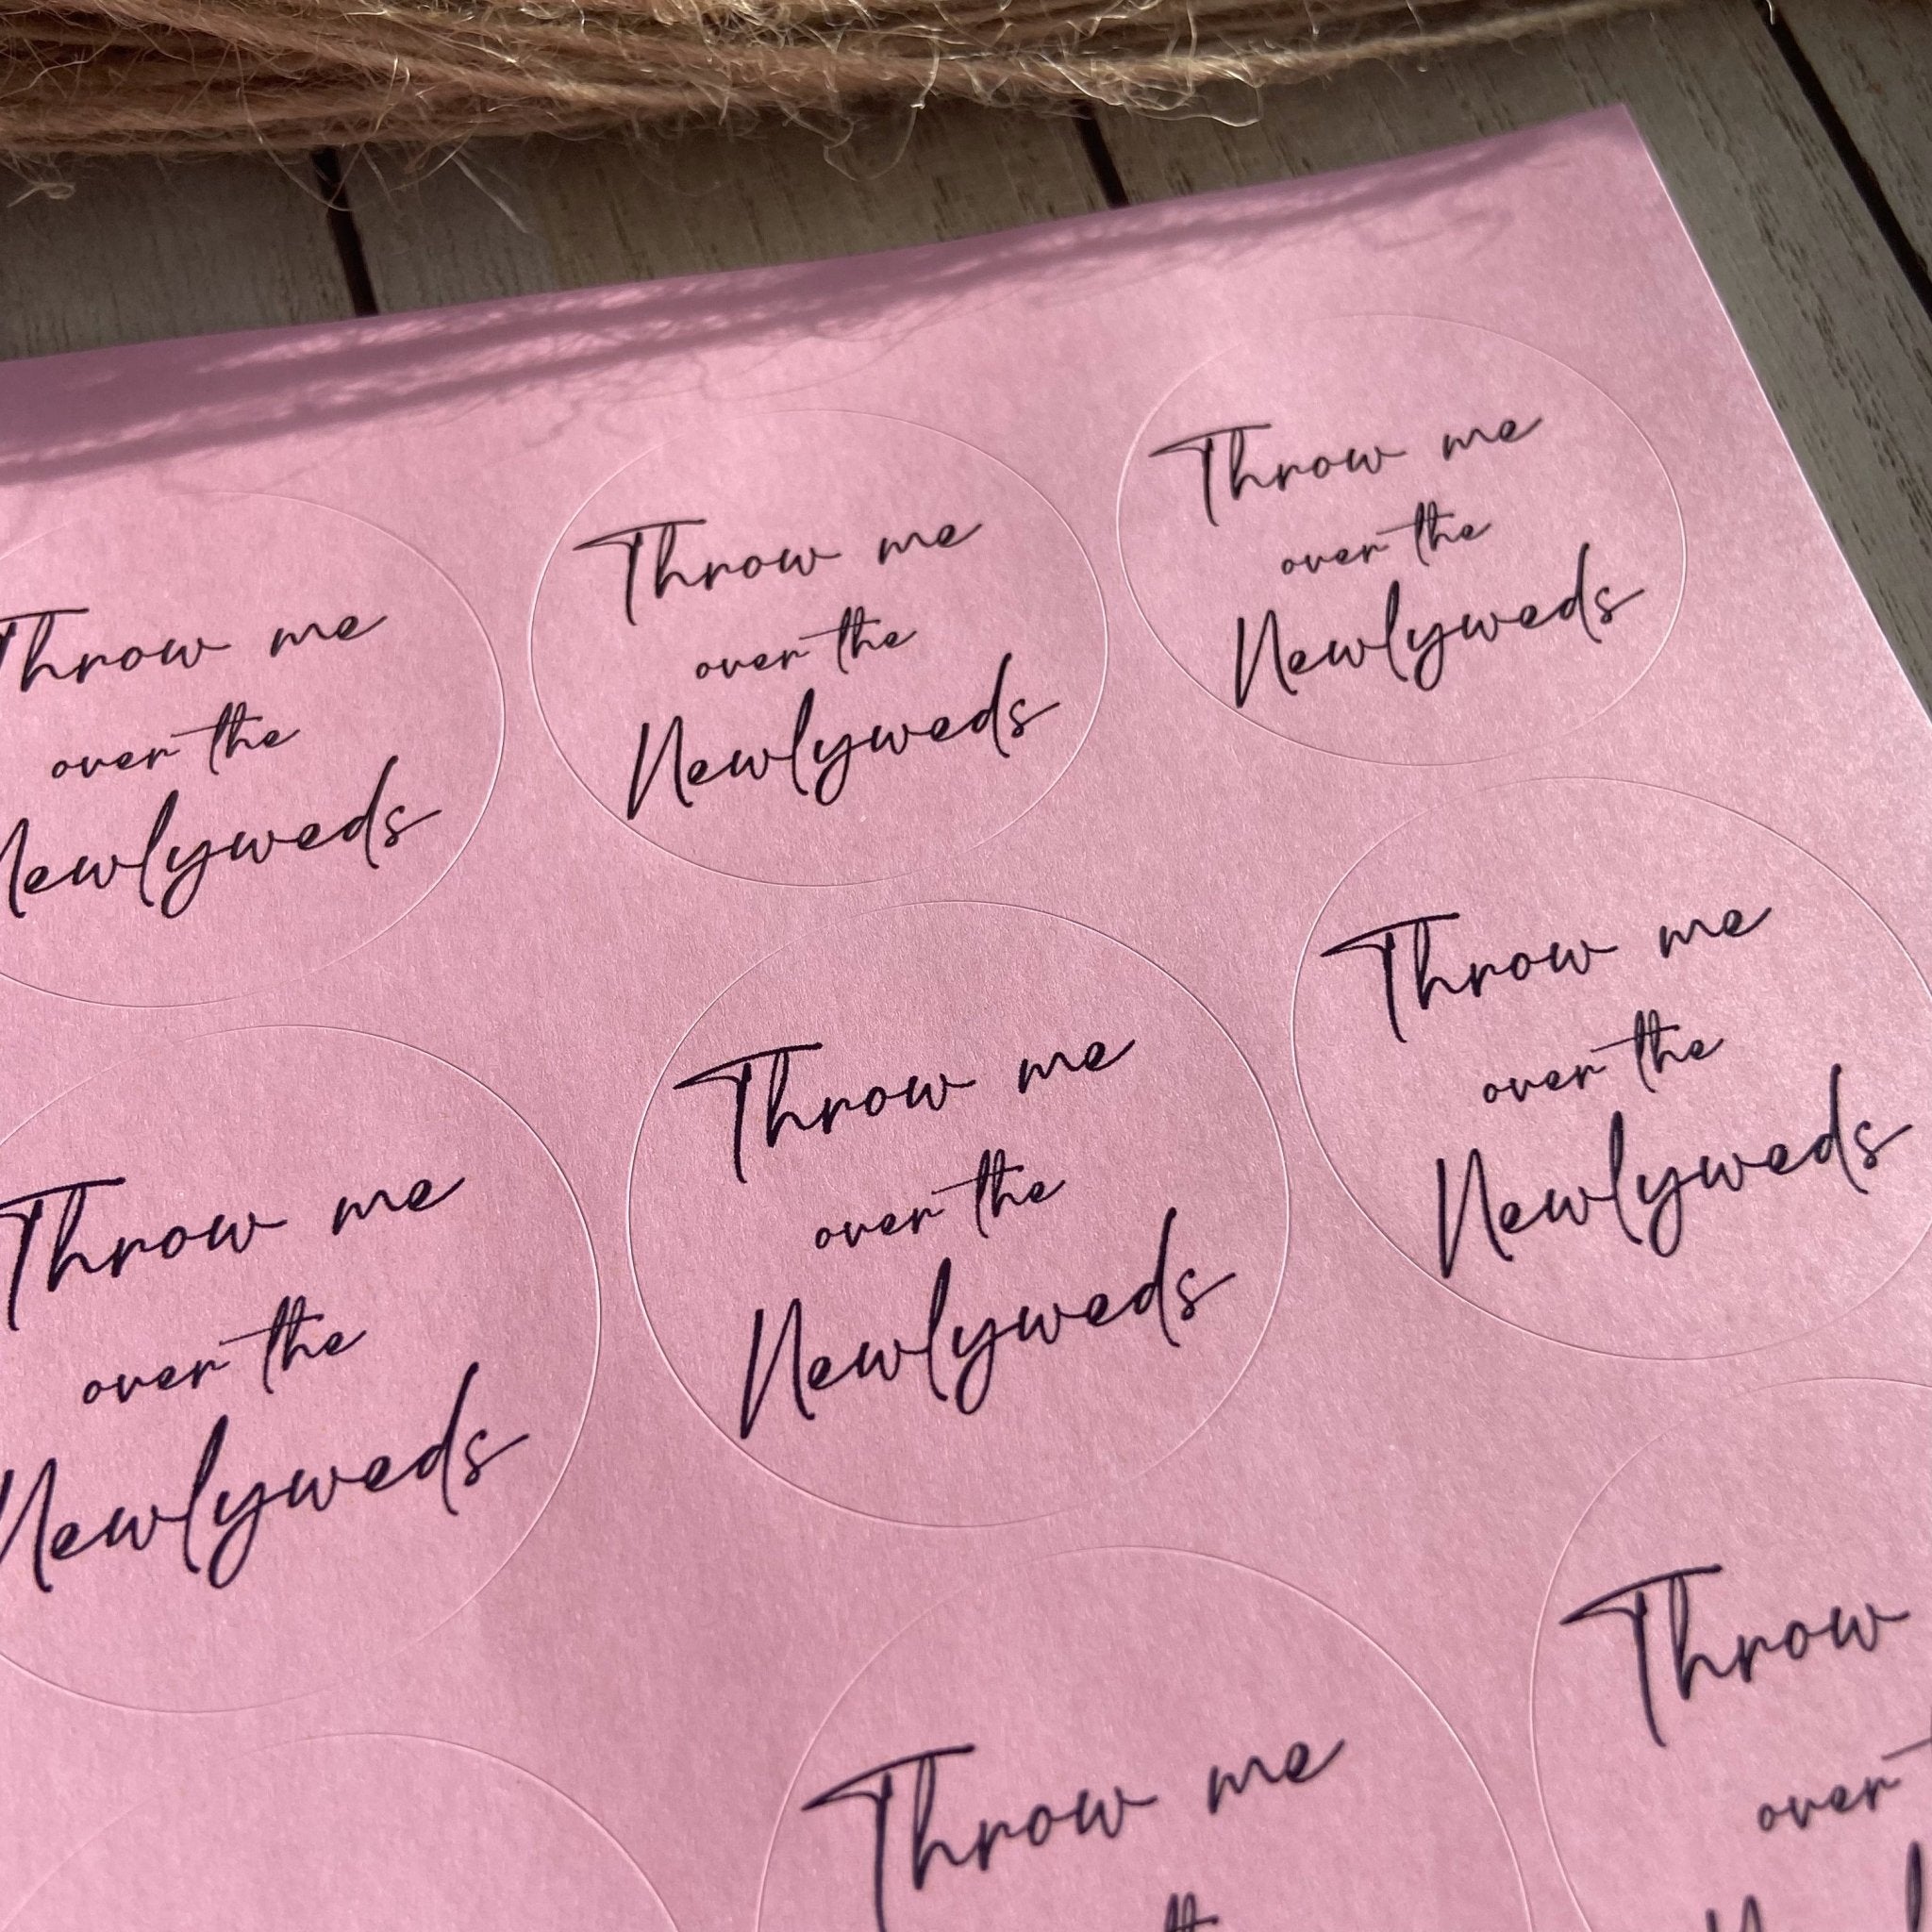 Throw me
over the
Newlyweds
Throw me
over the
Newlyweds
Throw me
over the
Newlyweds
Throw me
over the
Newlyweds
Throw me
over the
Newlyweds
Throw me
over the
Newlyweds
Throw me
Throw
over